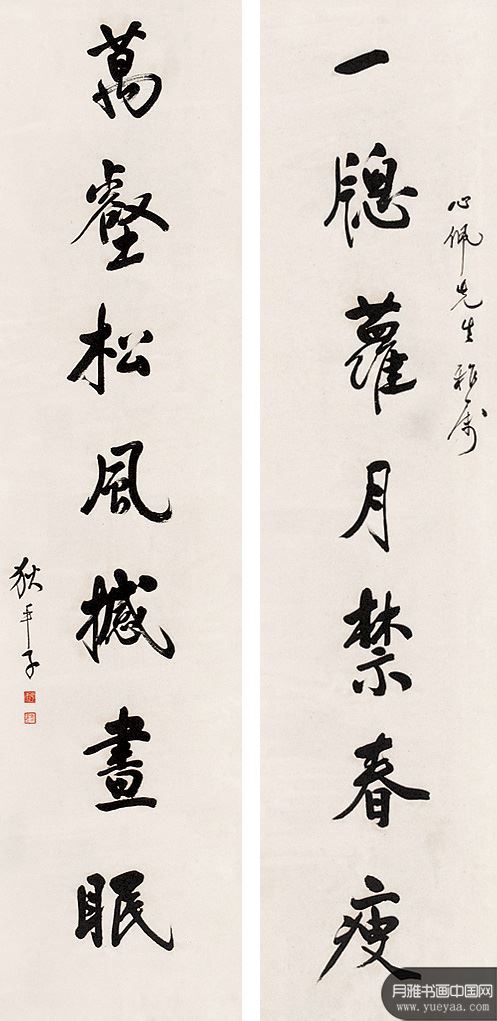 心佩先生雅属
一牕蘿月禁春瘦
萬壑松風撼晝眠
狄平子
月雅书画中国网
www.yueyaa.com